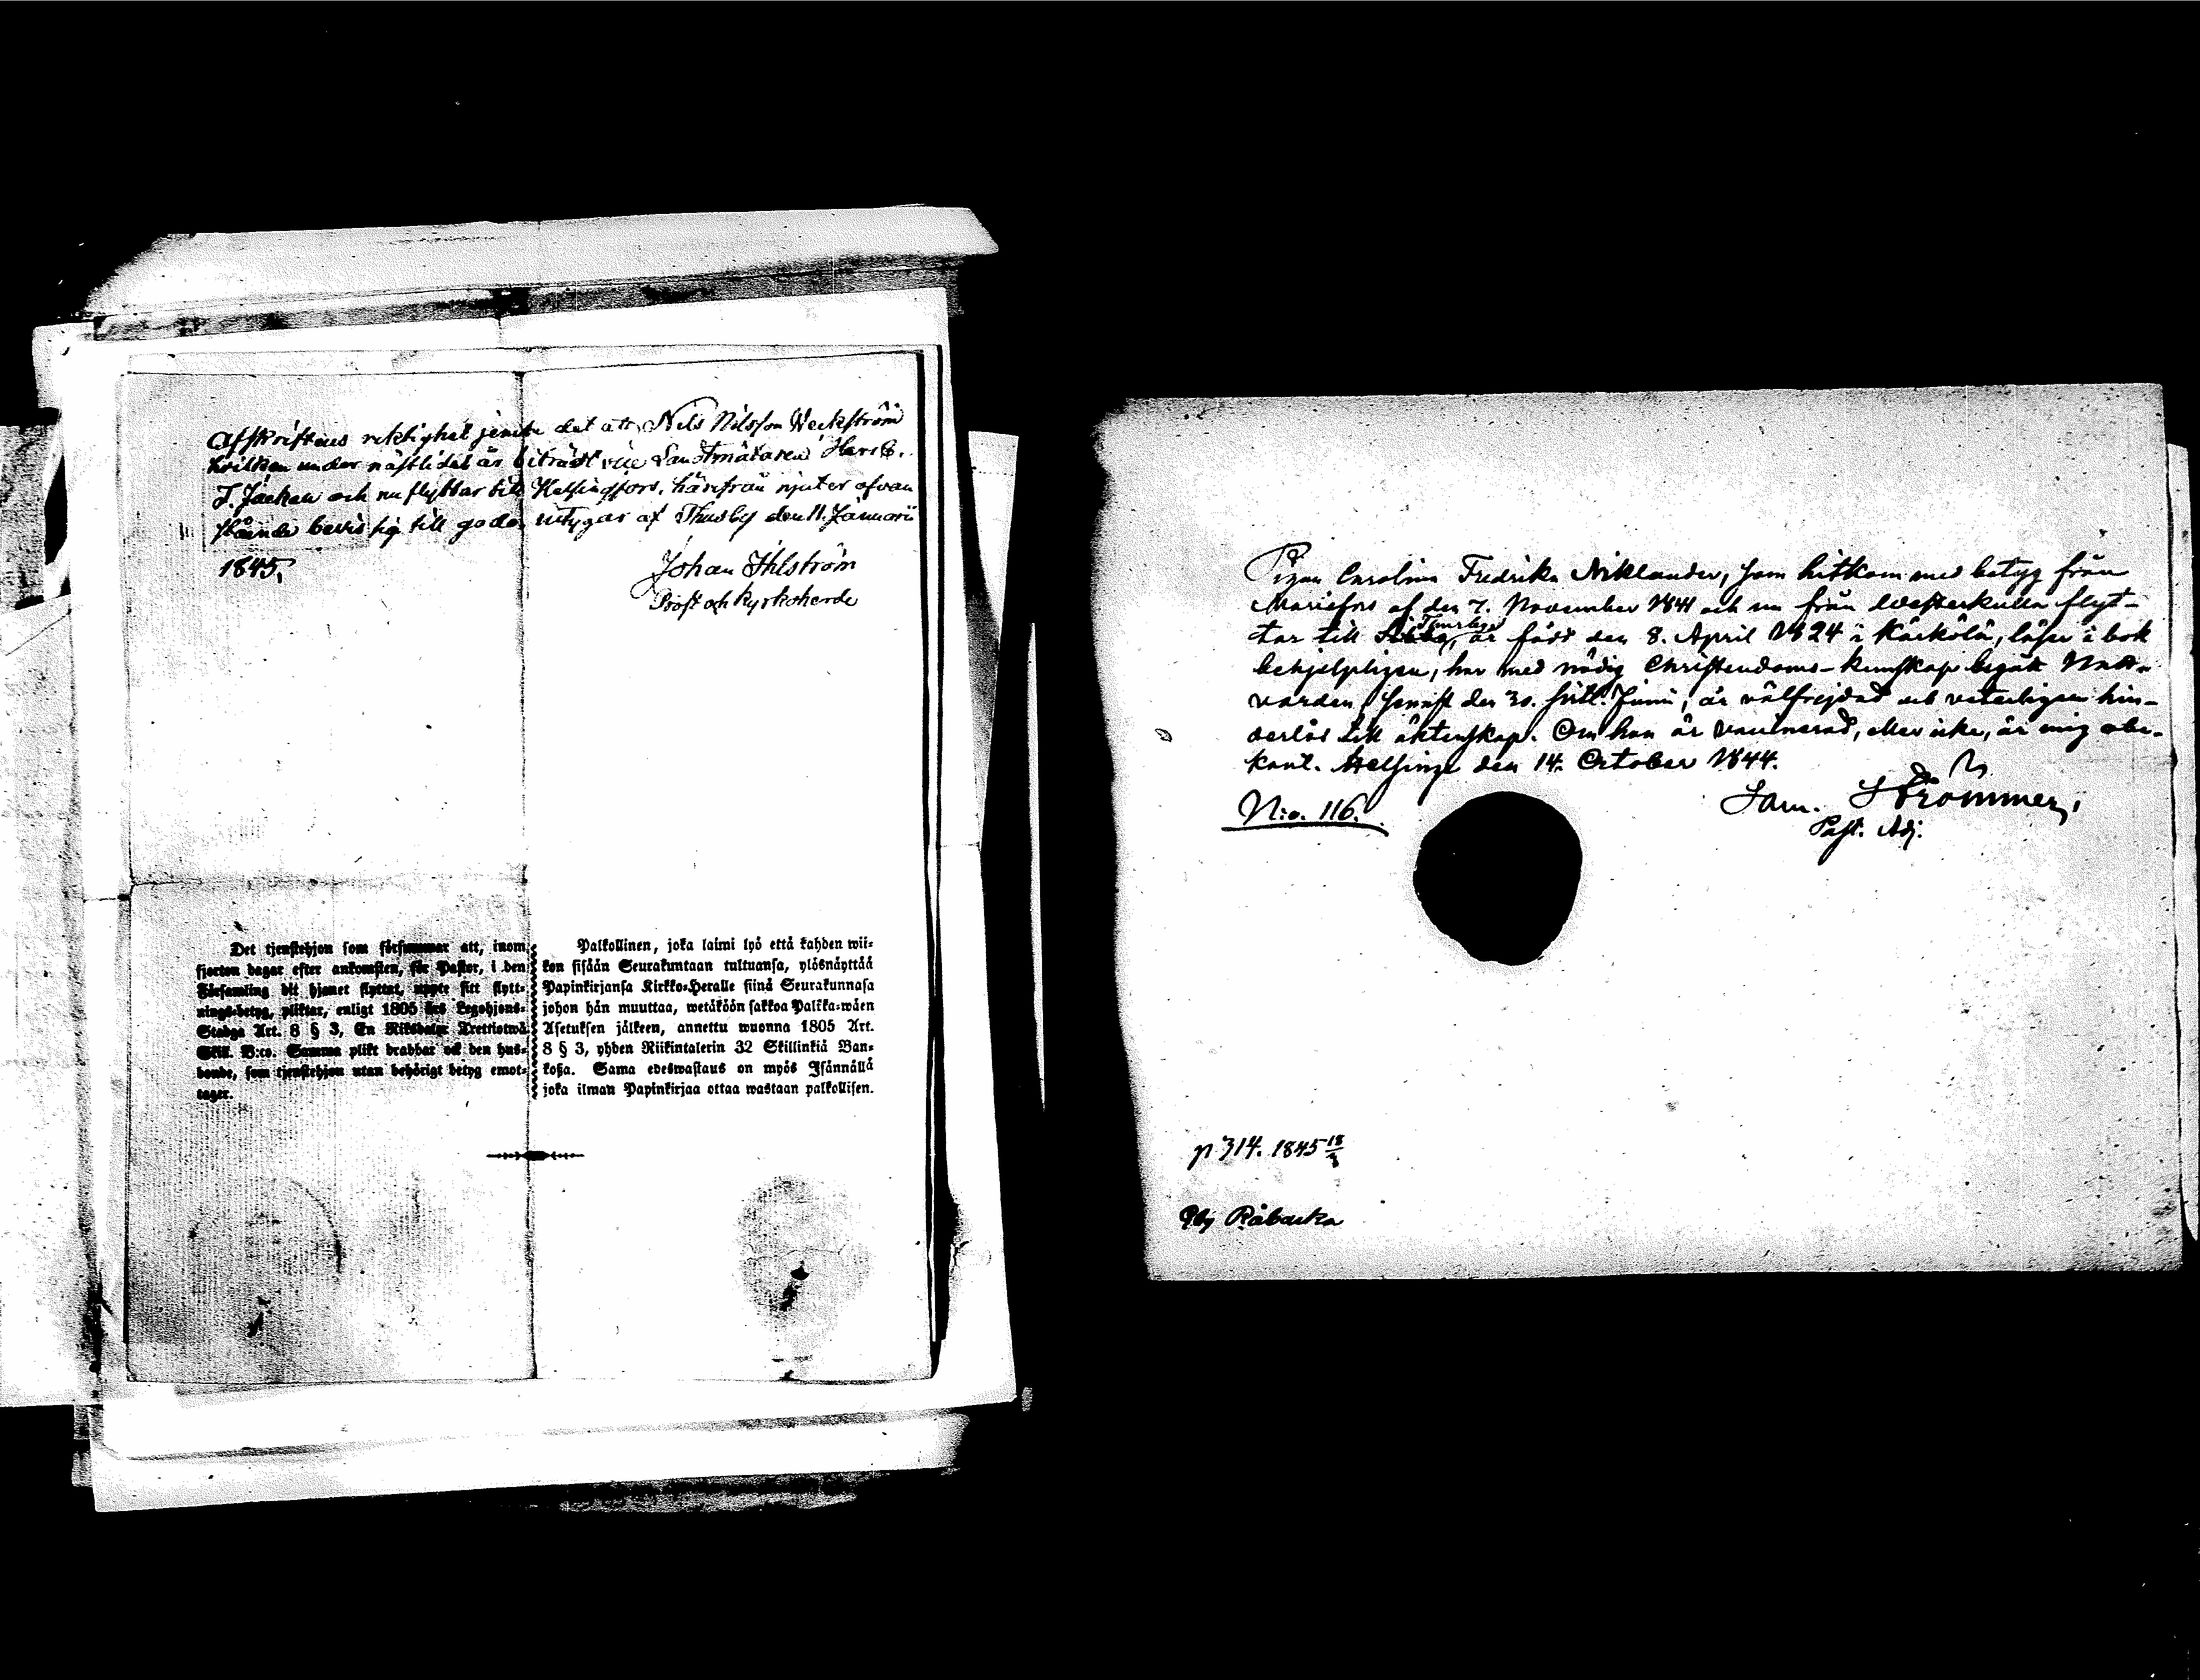 Affskriftens riktighet jemte det att Nils Nilsson Weckström
hvilken under nästlidet år biträdt vice Landtmätaren Herr C.
T. Jäcken och nu flyttar till Helsingfors, härifrån njuter ofvan
stående bevis sig till godo, intygar af Thusby den 11. Januarii
1845.
Johan Ihlström
Prost och Kyrkoherde
Det tjenstehjon som försummar att, inom
fjorton dagar efter ankomsten, för Pastor, i den
Församling dit hjonet flyttat, uppte sitt flytt-
nings-betyg, pliktar, enligt 1805 års Legohjons-
Stadga Art. 8 § 3, En Riksdaler Trettiotwå
Skill. B:co. Samma plikt drabbar ock den hus-
bonde, som tjenstehjon utan behörigt betyg emot-
tager.
Palkollinen, joka laimi lyö että kahden wii-
kon sisään Seurakuntaan tultuansa, ylösnäyttää
Papinkirjansa Kirkko-Heralle siinä Seurakunnasa
johon hän muuttaa, wetäköön sakkoa Palkka-wäen
Asetuksen jälkeen, annettu wuonna 1805 Art.
8 § 3, yhden Riikintalerin 32 Skillinkiä Ban-
kosa. Sama edeswastaus on myös Isännällä
joka ilman Papinkirjaa ottaa wastaan palkollisen.
Pigan Carolina Fredrika Niklander, som hitkom med betyg från
Mariefors af den 7. November 1841 och nu från Westerkulla flyt-
tar till Thusby, är född den 8. April 1824 i Kärkölä, läser i bok
behjelpligen, har med nödig Christendoms-kunskap begått Natt-
varden senast den 30. sistl. Junii, är välfrejdad och veterligen hin-
derlös till äktenskap. Om hon är vaccinerad, eller icke, är mig obe-
kant. Helsinge den 14. October 1844.
N:o. 116.
Sam. Strömmer,
Past. Adj.
p 314. 1845
Råbacka